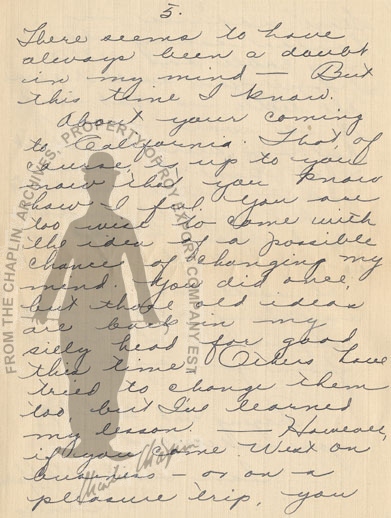 5.
There seems to have
always been a doubt
in my mind — But
this time I know.
About your coming
to California. That, of
course, is up to you
now that you know
how I feel. You are
too wise to come with
the idea of a possible
chance of changing my
mind. You did once,
but those old ideas
are back in my
silly head for good
this time. Others have
tried to change them
too but I've learned
my lesson. — However,
if you come West on
business — or on a
pleasure trip, you
FROM THE CHAPLIN ARCHIVES, PROPERTY OF ROY EXPORT COMPANY EST
Charlie Chaplin